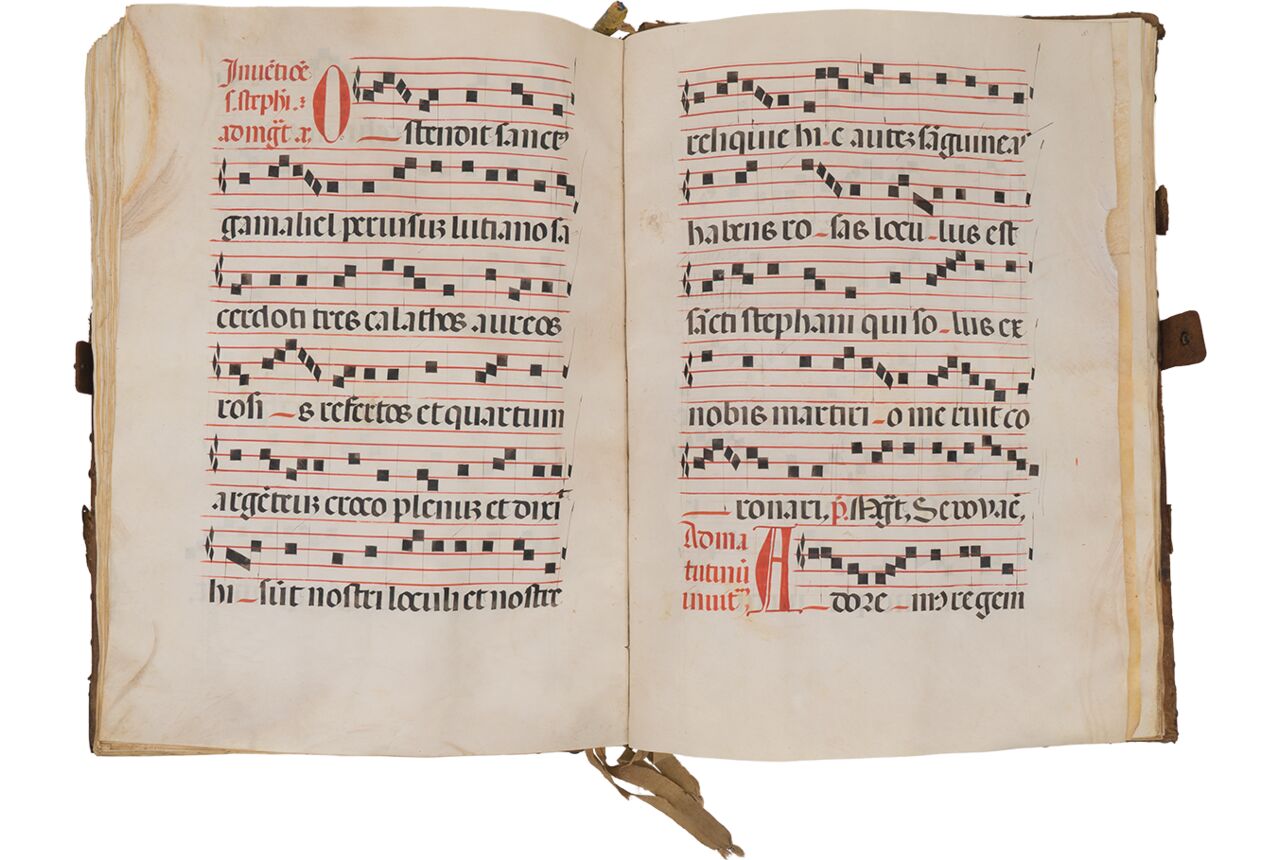 Inuẽtiõe
s. stephi.
ad mg̃t a.
Ostendit sanct9
gamaliel per uisuʒ lutiano sa
cerdoti tres calathos aureos
rosi - s refertos et quartum
argẽteuʒ croco plenuʒ et dixi
hi - sũt nostri loculi et nostre
reliquie hi - c auteʒ sãguineas
habens ro - sas locu - lus est
sãcti stephani qui so - lus ex
nobis martiri - o me ruit co
ronari. p̃. Mg̃t, Seuouaẽ,
Ad ma
tutinũ
inuit
Adore - m9 regem